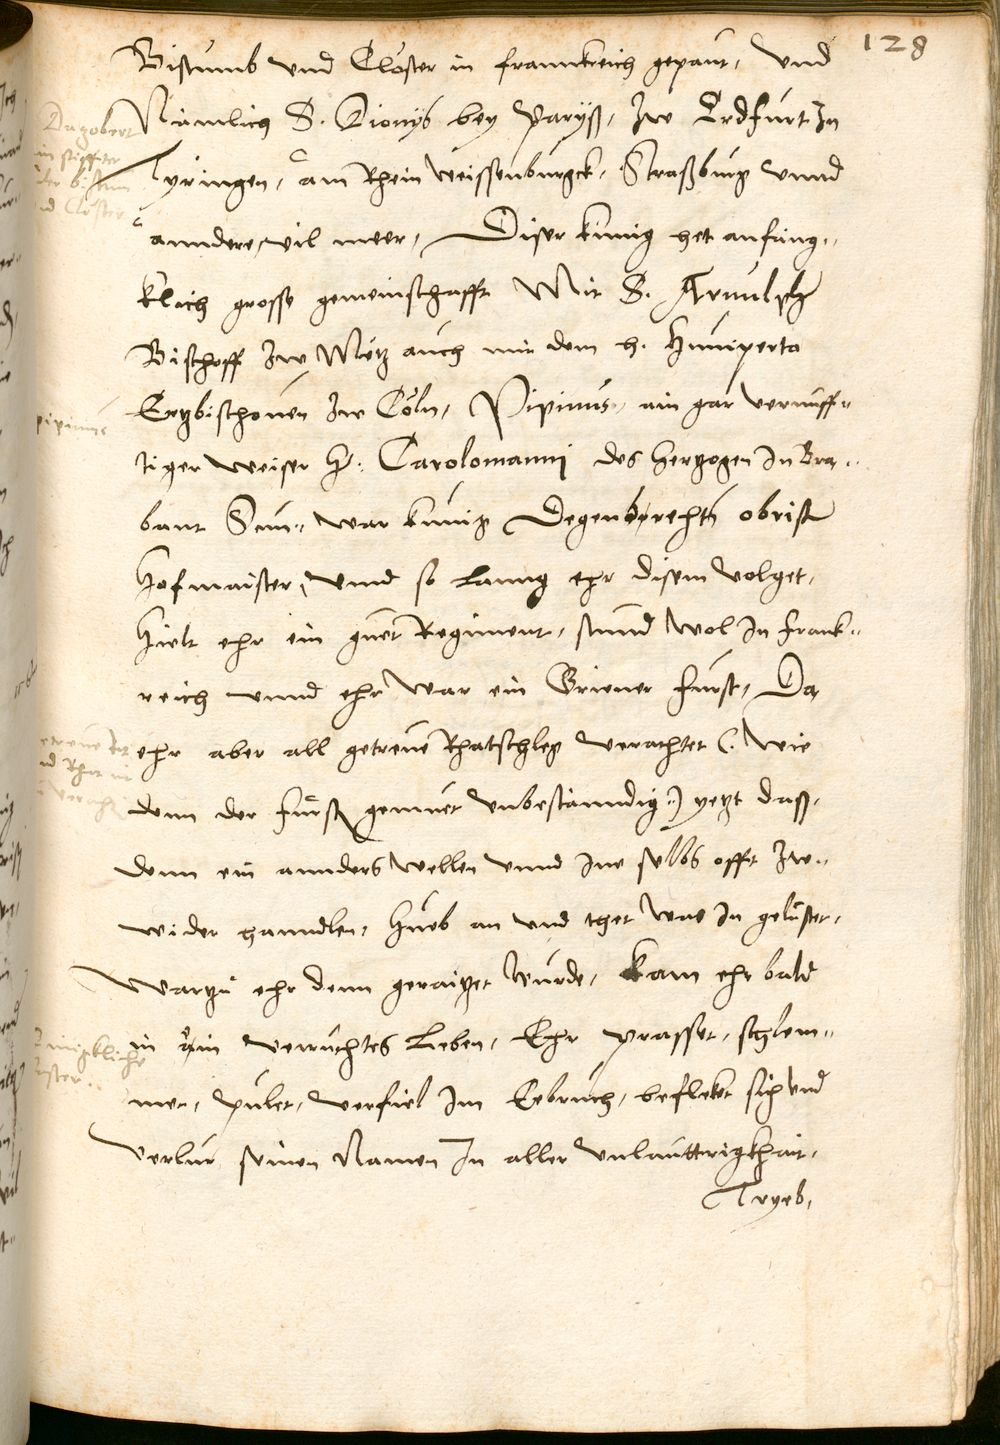 128
Bistumb und Closter in frannkreich gepaut, Und
Nämlich S. Dionys bey Paryß, Zw Erdfurt In
Tyringen, am Rhein Weissenburgck, Straßburg unnd
anndere vil meer, Diser kunig het anfäng,,
klich grosse gemeinschafft Mit S. Arnulph
Bischoff Zw Metz auch mit dem h. Huniperto
Ertzbischouen Zw Cöln, Pipinus, ain gar vernuff,,
tiger weiser H: Carolomanni des hertzogen In Bra,,
bant Sun,, war kunig Degenbrechts obrist
Hofmaister, unnd so Lanng ehr disem volget,
Hielt ehr ein guet Regiment, stunnd Wol In frank,,
reich unnd ehr war ein Friener fürst, Da
ehr aber all getreue Rhatschleg verachtet (. Wie
denn der fürst gemuet unbestänndig:) yetzt dass,
denn ein annders wellen unnd Ime selbs offt Zw,,
wider hanndlen, Hueb an und thet Was In gelüstet,
Wartzu ehr denn geraitzet wurde, kam ehr bald
in ain verruchtes Leben, Ehr prasset, schlem,,
met, pulet, verfiel Im Eebruch, befleket sich und
verlur seinen Namen In aller unlauttrigkhait,
Tryeb,
Dagobert
ein stiffter
der bistum
nd Closter
pipinus
etreue
nd Rhat
veracht